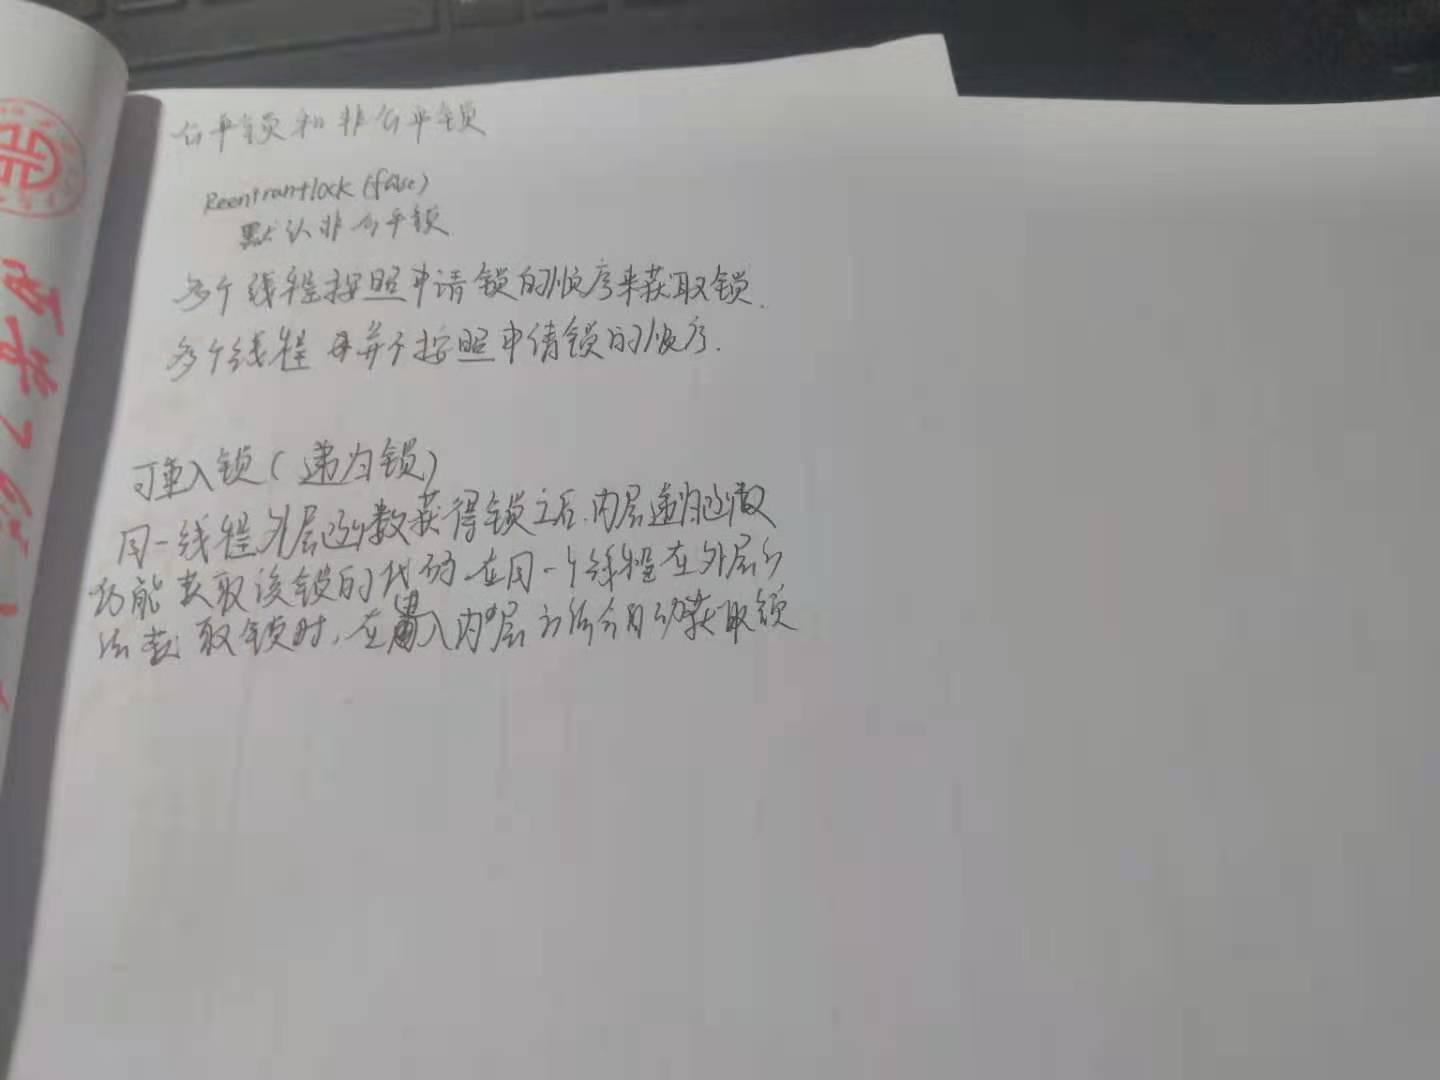 公平锁和非公平锁
Reentrantlock (false)
默认非公平锁
多个线程按照申请锁的顺序来获取锁.
多个线程 并不按照申请锁的顺序.
可重入锁(递归锁)
同一线程外层函数获得锁之后.内层递归函数
仍能获取该锁的代码.在同一个线程在外层方
法获取锁时.在进入内层方法会自动获取锁